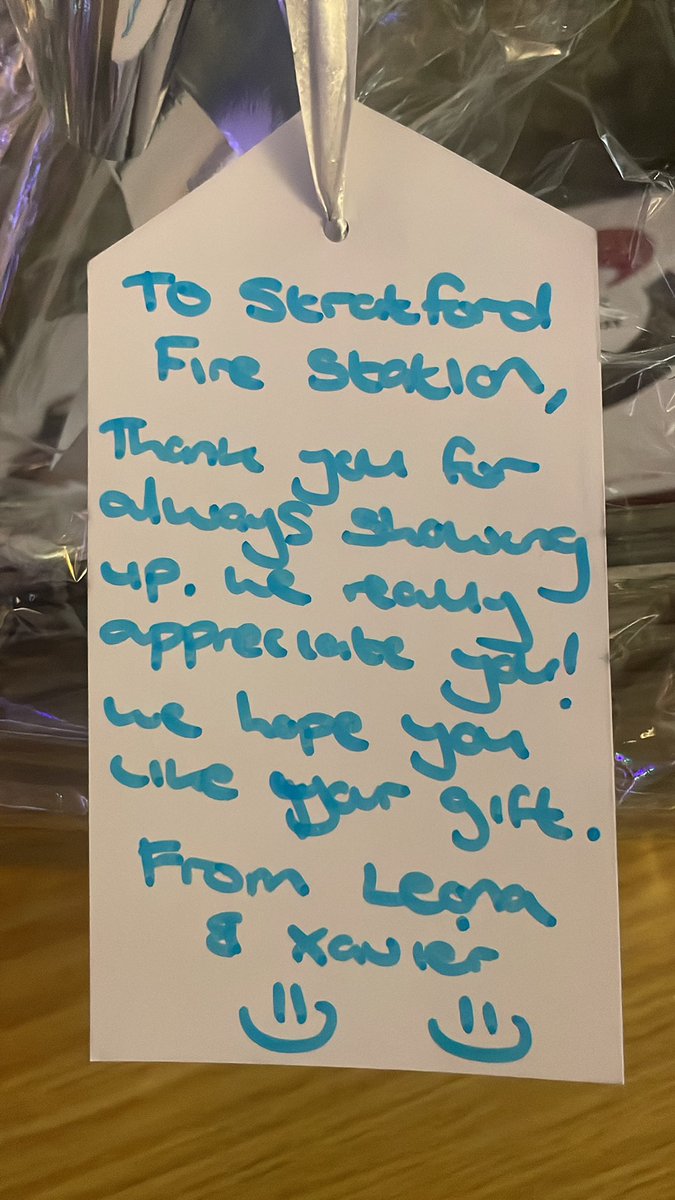 To Stratford
Fire Station,
Thank you for
always showing
up. we really
appreciate you!
we hope you
like your gift.
From Leona
& Xavier